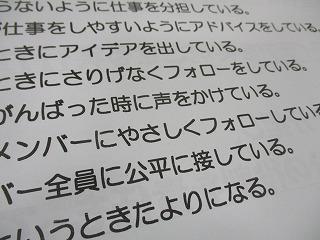 うないように仕事を分担している。
が仕事をしやすいようにアドバイスをしている。
ときにアイデアを出している。
ときにさりげなくフォローをしている。
がんばった時に声をかけている。
メンバーにやさしくフォローしている
バー全員に公平に接している。
というときたよりになる。